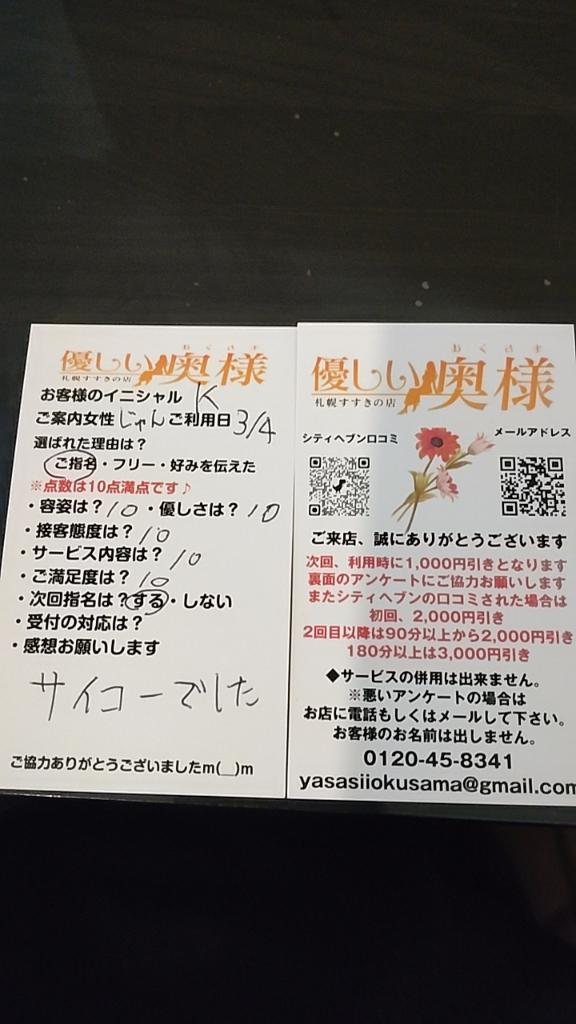 優しい奥様
おくさま
札幌すすきの店
お客様のイニシャル K
ご案内女性 じゃん ご利用日 3/4
選ばれた理由は？
ご指名・フリー・好みを伝えた
※点数は10点満点です♪
・容姿は？10・優しさは？10
・接客態度は？10
・サービス内容は？10
・ご満足度は？10
・次回指名は？する・しない
・受付の対応は？
・感想お願いします
サイコーでした
ご協力ありがとうございましたm(__)m
優しい奥様
おくさま
札幌すすきの店
シティヘブン口コミ
メールアドレス
ご来店、誠にありがとうございます
次回、利用時に1,000円引きとなります
裏面のアンケートにご協力お願いします
またシティヘブンの口コミされた場合は
初回、2,000円引き
2回目以降は90分以上から2,000円引き
180分以上は3,000円引き
◆サービスの併用は出来ません。
※悪いアンケートの場合は
お店に電話もしくはメールして下さい。
お客様のお名前は出しません。
0120-45-8341
yasasiiokusama@gmail.com